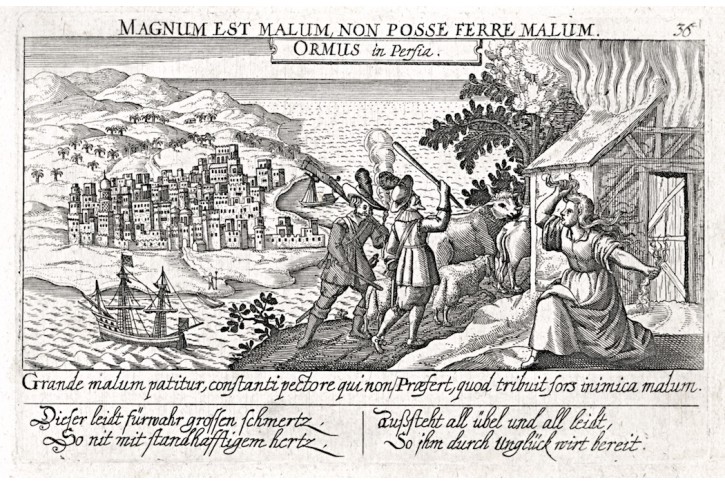 MAGNUM EST MALUM, NON POSSE FERRE MALUM.
36
ORMUS in Persia.
Grande malum patitur, constanti pectore qui non / Præfert, quod tribuit sors inimica malum.
Dieser leidt fürwahr grossen schmertz,
So nit mit standhafftigem hertz.
Außsteht all übel und all leidt,
So jhm durch Unglück wirt bereit.